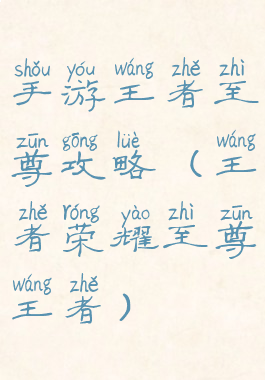 shǒu yóu wáng zhě zhì
手游王者至
zūn gōng lüè wáng
尊攻略（王
zhě róng yào zhì zūn
者荣耀至尊
wáng zhě
王者）